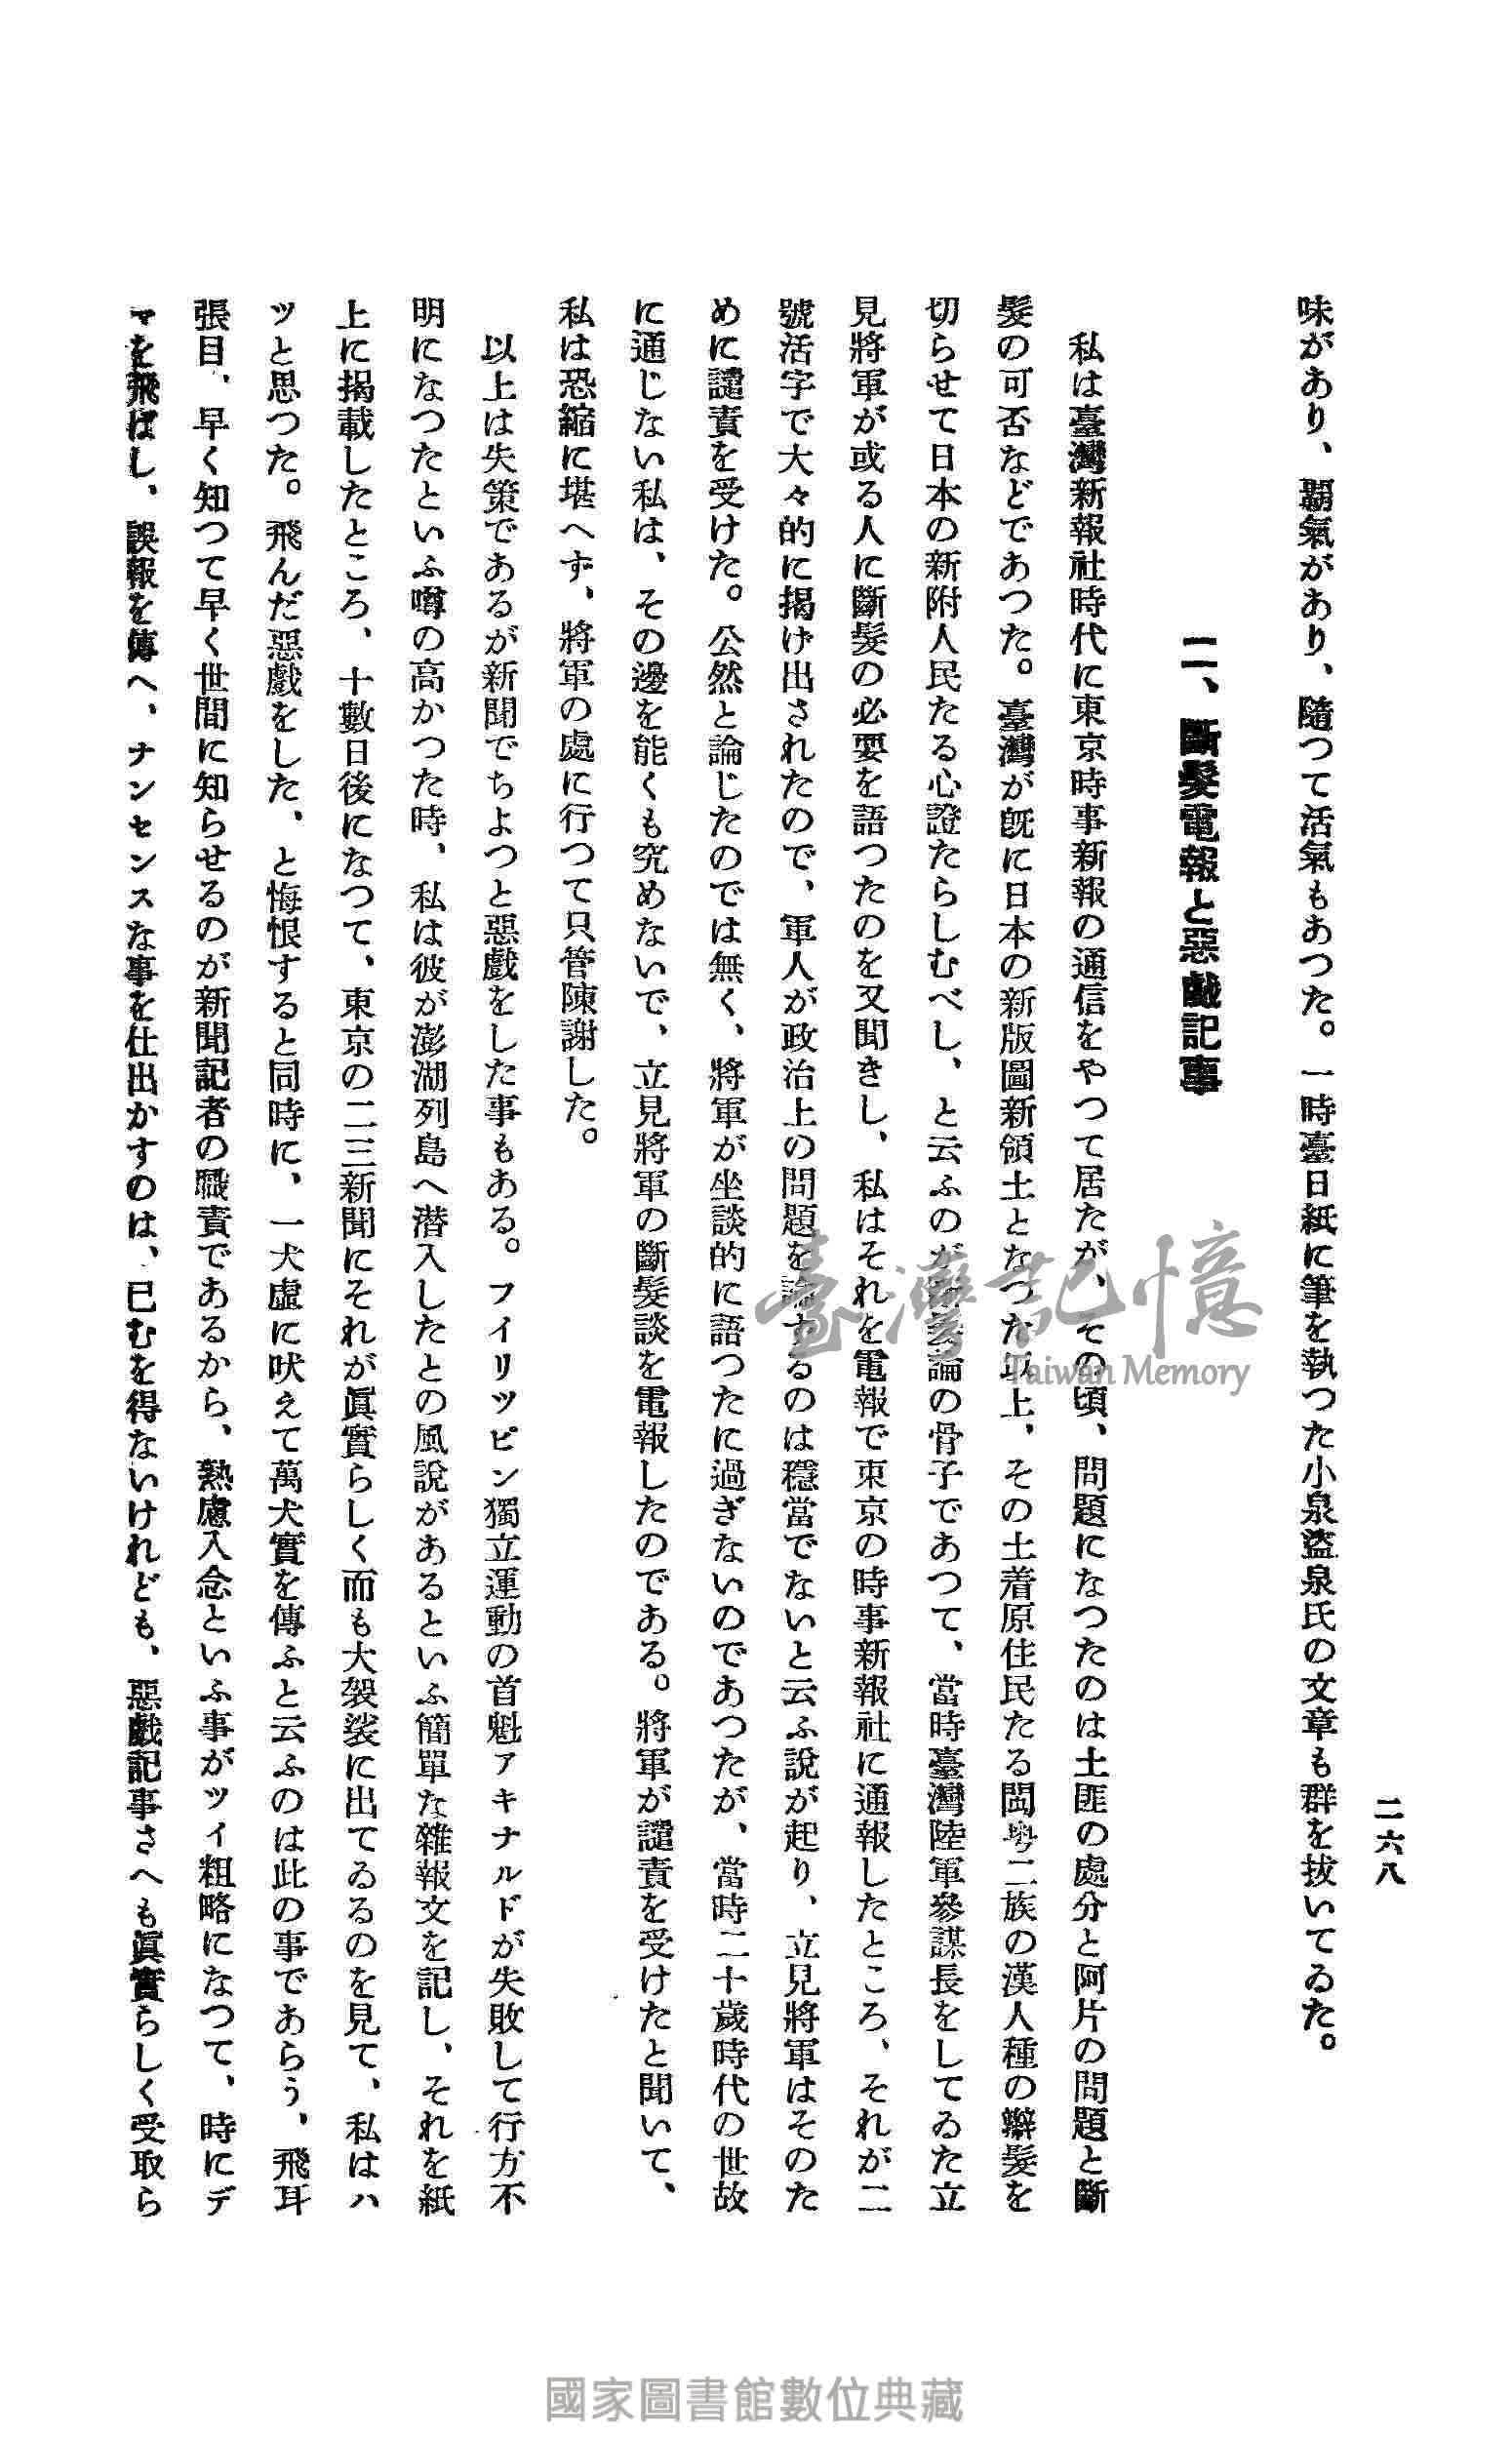 二六八
味があり、覇氣があり、隨つて活氣もあつた。一時臺日紙に筆を執つた小泉盜泉氏の文章も群を拔いてゐた。
二、斷髮電報と惡戲記事
私は臺灣新報社時代に東京時事新報の通信をやつて居たが、その頃、問題になつたのは土匪の處分と阿片の問題と斷
髮の可否などであつた。臺灣が既に日本の新版圖新領土となつた以上、その土着原住民たる閩粤二族の漢人種の辮髮を
切らせて日本の新附人民たる心證たらしむべし、と云ふのが斷髮論の骨子であつて、當時臺灣陸軍參謀長をしてゐた立
見將軍が或る人に斷髮の必要を語つたのを又聞きし、私はそれを電報で東京の時事新報社に通報したところ、それが二
號活字で大々的に揭け出されたので、軍人が政治上の問題を論するのは穩當でないと云ふ說が起り、立見將軍はそのた
めに譴責を受けた。公然と論じたのでは無く、將軍が坐談的に語つたに過ぎないのであつたが、當時二十歲時代の世故
に通じない私は、その邊を能くも究めないで、立見將軍の斷髮談を電報したのである。將軍が譴責を受けたと聞いて、
私は恐縮に堪へず、將軍の處に行つて只管陳謝した。
以上は失策であるが新聞でちよつと惡戲をした事もある。フイリツピン獨立運動の首魁アキナルドが失敗して行方不
明になつたといふ噂の高かつた時、私は彼が澎湖列島へ潜入したとの風說があるといふ簡單な雜報文を記し、それを紙
上に揭載したところ、十數日後になつて、東京の二三新聞にそれが眞實らしく而も大袈裟に出てゐるのを見て、私はハ
ツと思つた。飛んだ惡戲をした、と悔恨すると同時に、一犬虛に吠えて萬犬實を傳ふと云ふのは此の事であらう、飛耳
張目、早く知つて早く世間に知らせるのが新聞記者の職責であるから、熟慮入念といふ事がツイ粗略になつて、時にデ
マを飛ばし、誤報を傳へ、ナンセンスな事を仕出かすのは、已むを得ないけれども、惡戲記事さへも眞實らしく受取ら
臺灣記憶
Taiwan Memory
國家圖書館數位典藏